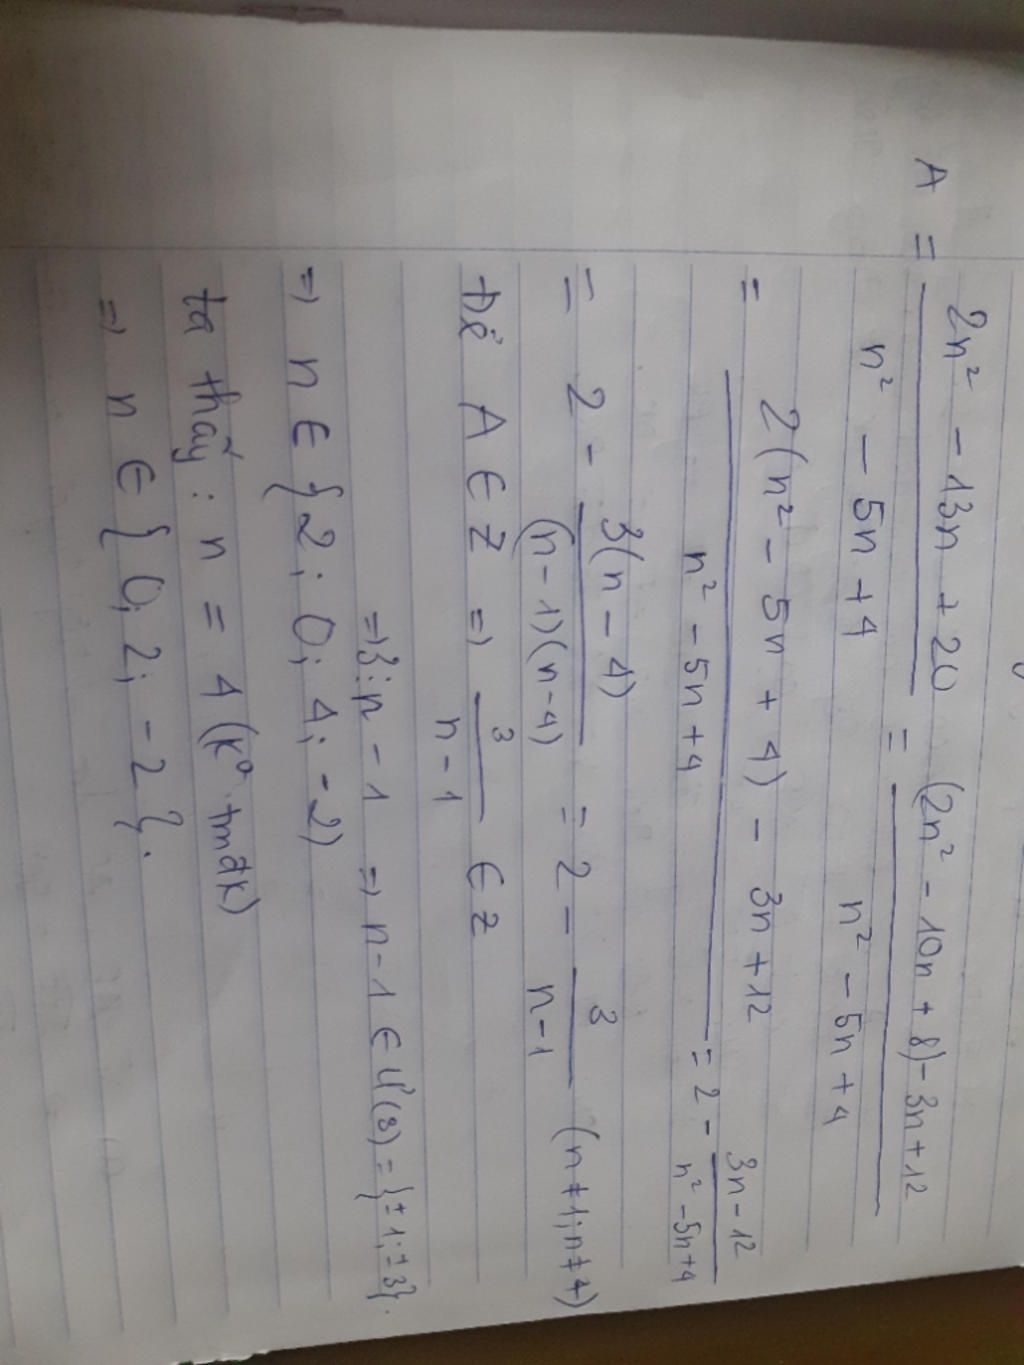 A = (2n² - 13n + 20)/(n² - 5n + 4) = ((2n² - 10n + 8) - 3n + 12)/(n² - 5n + 4)
= (2(n² - 5n + 4) - 3n + 12)/(n² - 5n + 4) = 2 - (3n - 12)/(n² - 5n + 4)
= 2 - 3(n - 4)/((n - 1)(n - 4)) = 2 - 3/(n - 1) (n ≠ 1; n ≠ 4)
Để A ∈ Z => 3/(n - 1) ∈ Z
=> 3 ⋮ n - 1 => n - 1 ∈ Ư(3) = {±1; ±3}.
=> n ∈ {2; 0; 4; -2}
ta thấy : n = 4 (k° tmđk)
=> n ∈ {0; 2; -2}.